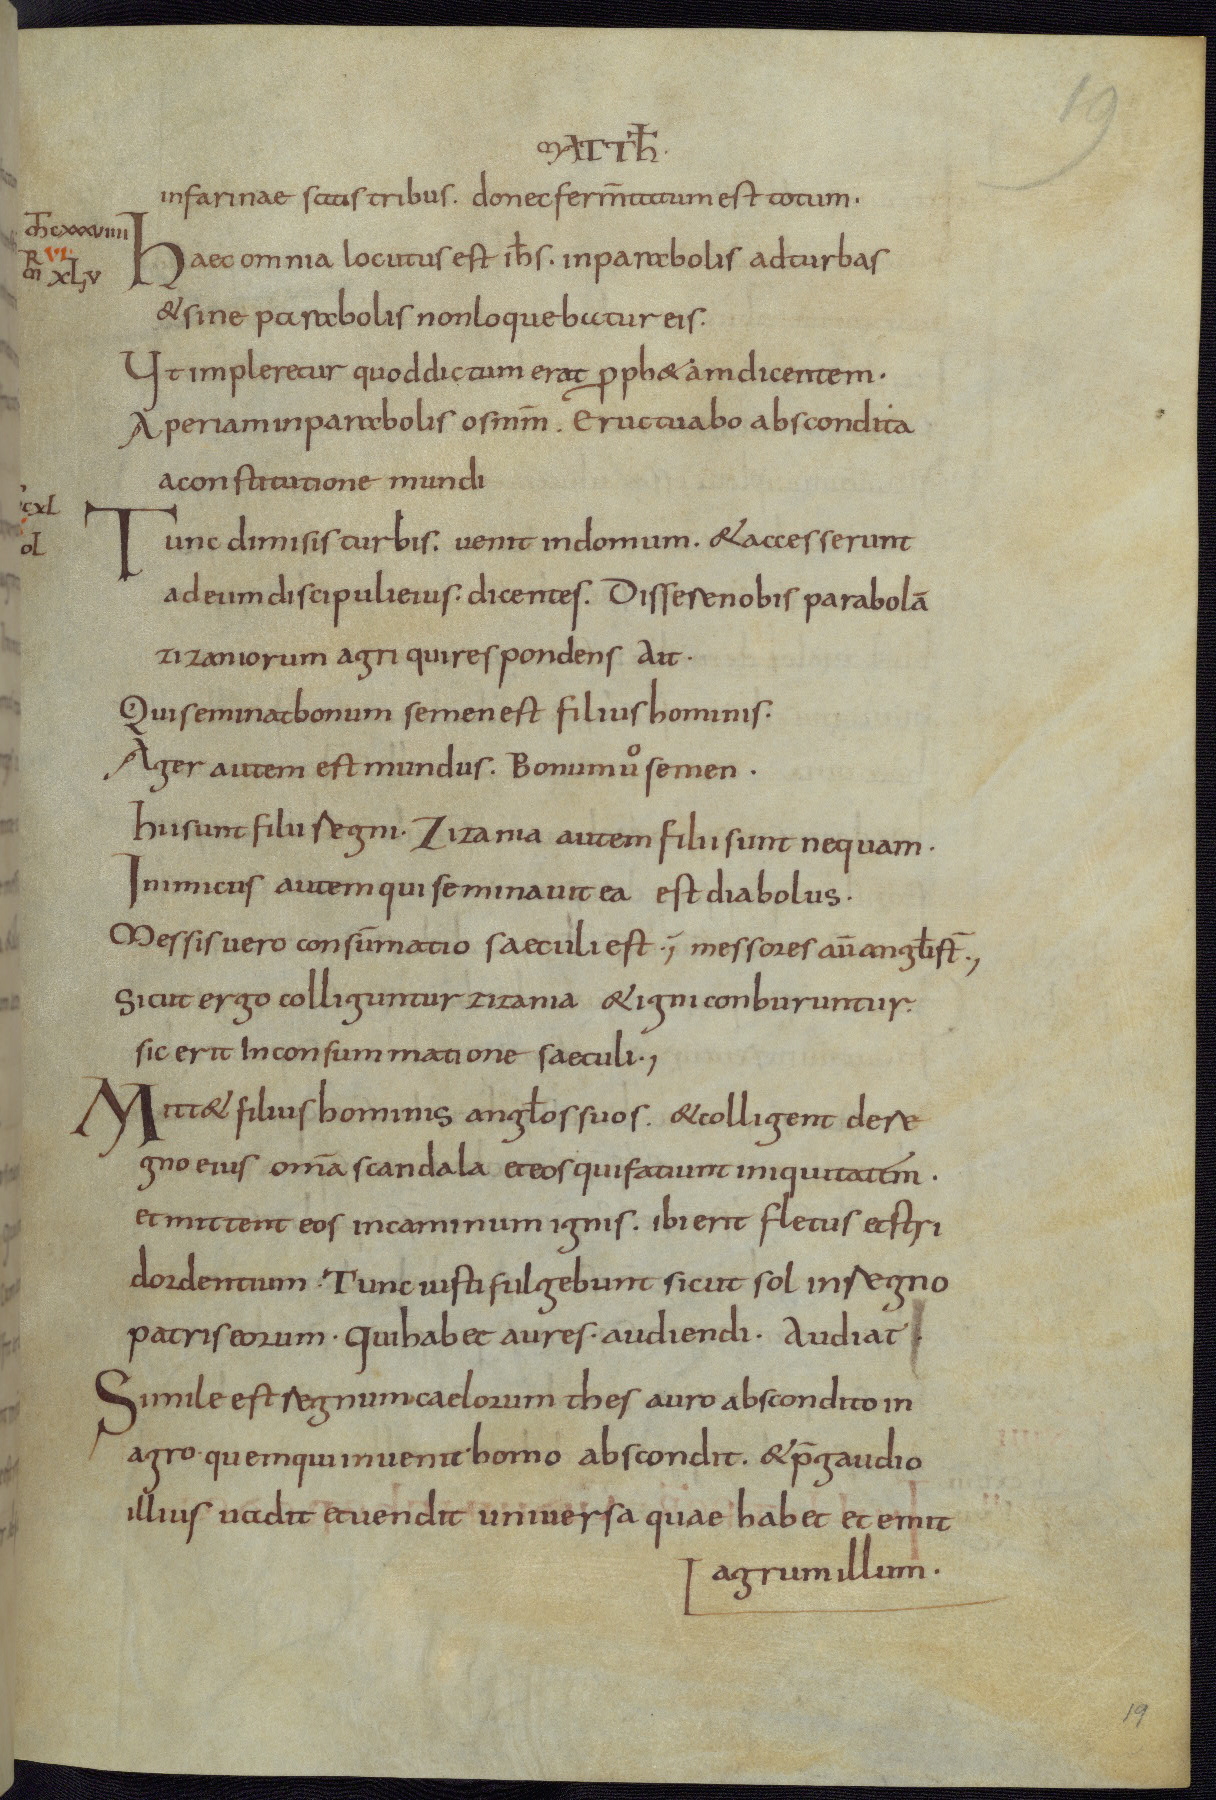 19
MATTH̄.
infarinae satis tribus. donec ferm̄tatum est totum.
M̄ cxxxviiii
R VI
M xLv
Haec omnia locutus est ih̄s. inparabolis adturbas
& sine parabolis nonloquebatur eis.
Ut impleretur quoddictum erat p̱ph&am dicentem.
Aperiam inparabolis osmm̄. Eructuabo abscondita
aconstitutione mundi
cxL
oL
Tunc dimisis turbis. venit indomum. &accesserunt
adeum discipuli eius. dicentes. Disserenobis parabolā
zizaniorum agri quirespondens Ait.
Quiseminat bonum semen est filius hominis.
Ager autem est mundus. Bonum ůsemen.
hiisunt filii regni. Zizania autem filii sunt nequam.
Inimicus autem qui seminavit ea est diabolus.
Messis vero consūmatio saeculi est., messores aū angłi st̄.,
Sicut ergo colliguntur zizania & igni conburuntur.
sic erit Inconsummatione saeculi.,
Mitt& filius hominis angłos suos. &colligent dere
gno eius om̄a scandala et eos quifatiunt iniquitatem.
et mittent eos incaminum ignis. ibi erit fletus et stri
dor dentium. Tunc iusti fulgebunt sicut sol inregno
patris eorum. Quihabet aures. audiendi. Audiat.
Simile est regnum caelorum thes auro abscondito in
agro. quem qui invenit homo abscondit. & p̄gaudio
illius vadit et vendit universa quae habet et emit
agrum illum.
19